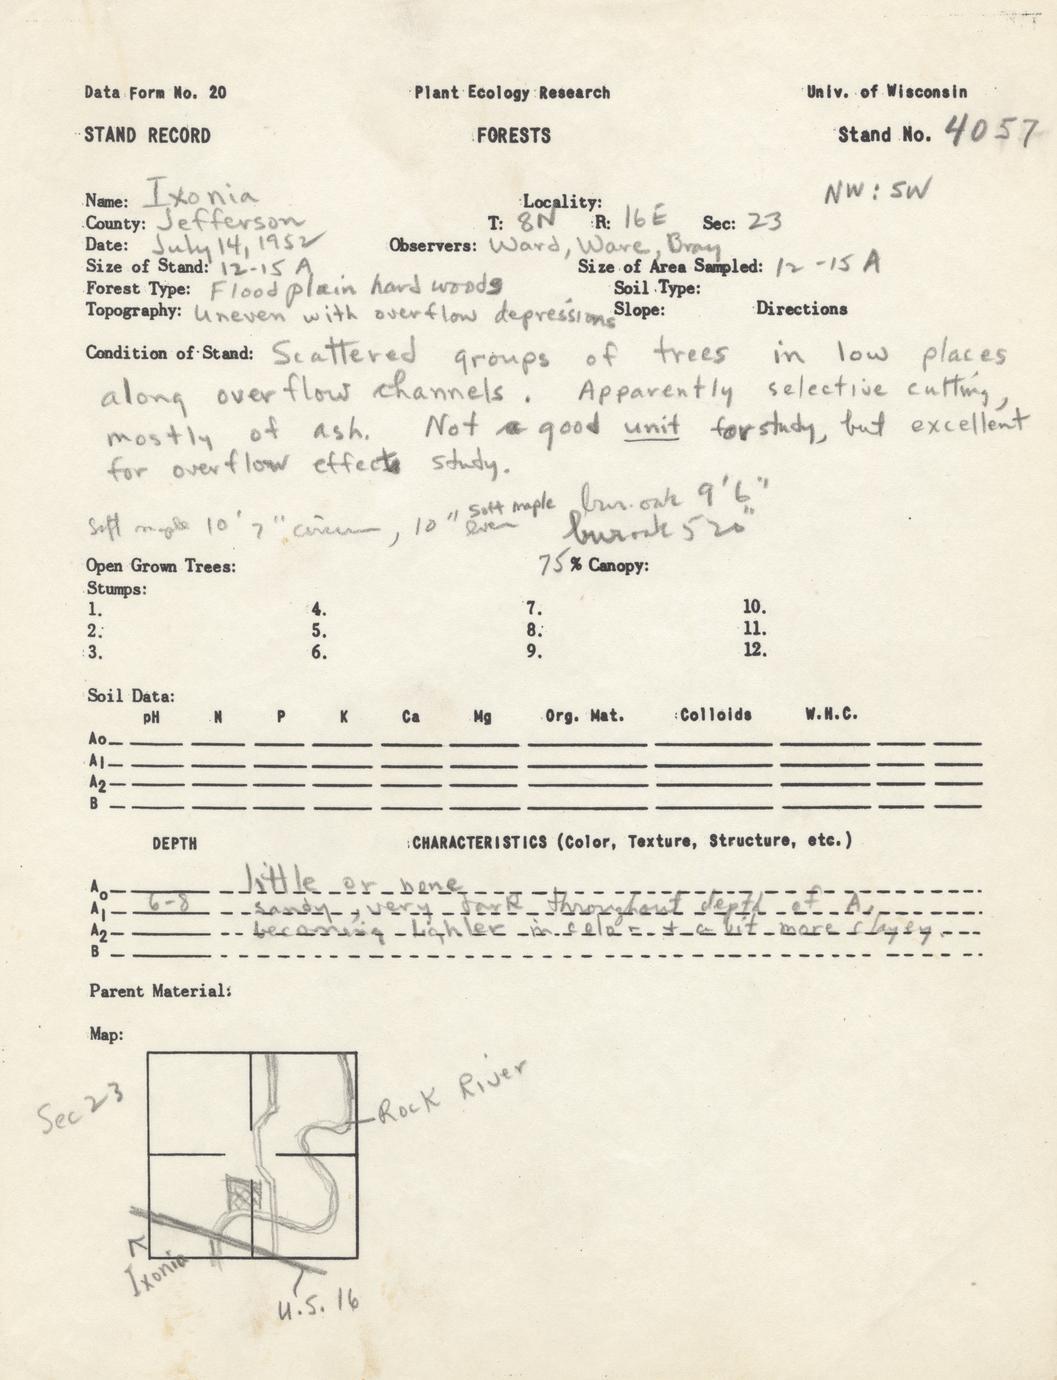 Data Form No. 20 Plant Ecology Research Univ. of Wisconsin
STAND RECORD FORESTS Stand No. 4057
Name: Ixonia Locality: NW: SW
County: Jefferson T: 8N R: 16E Sec: 23
Date: July 14, 1952 Observers: Ward, Ware, Bray
Size of Stand: 12-15 A Size of Area Sampled: 12-15 A
Forest Type: Flood plain hardwoods Soil Type:
Topography: Uneven with overflow depressions Slope: Directions
Condition of Stand: Scattered groups of trees in low places
along overflow channels. Apparently selective cutting,
mostly of ash. Not a good unit for study, but excellent
for overflow effects study.
Soft maple 10' 7" circum, 10" soft maple bur oak 9'6"
bur oak 5
Open Grown Trees: 75% Canopy:
Stumps:
1. 4. 7. 10.
2. 5. 8. 11.
3. 6. 9. 12.
Soil Data:
pH N P K Ca Mg Org. Mat. Colloids W.H.C.
Ao
A1
A2
B
DEPTH CHARACTERISTICS (Color, Texture, Structure, etc.)
Ao little or none
A1 6-8 sandy, very dark throughout depth of A1
A2 becoming lighter in color + a bit more clayey.
B
Parent Material:
Map:
Sec 23
Rock River
Ixonia
U.S. 16